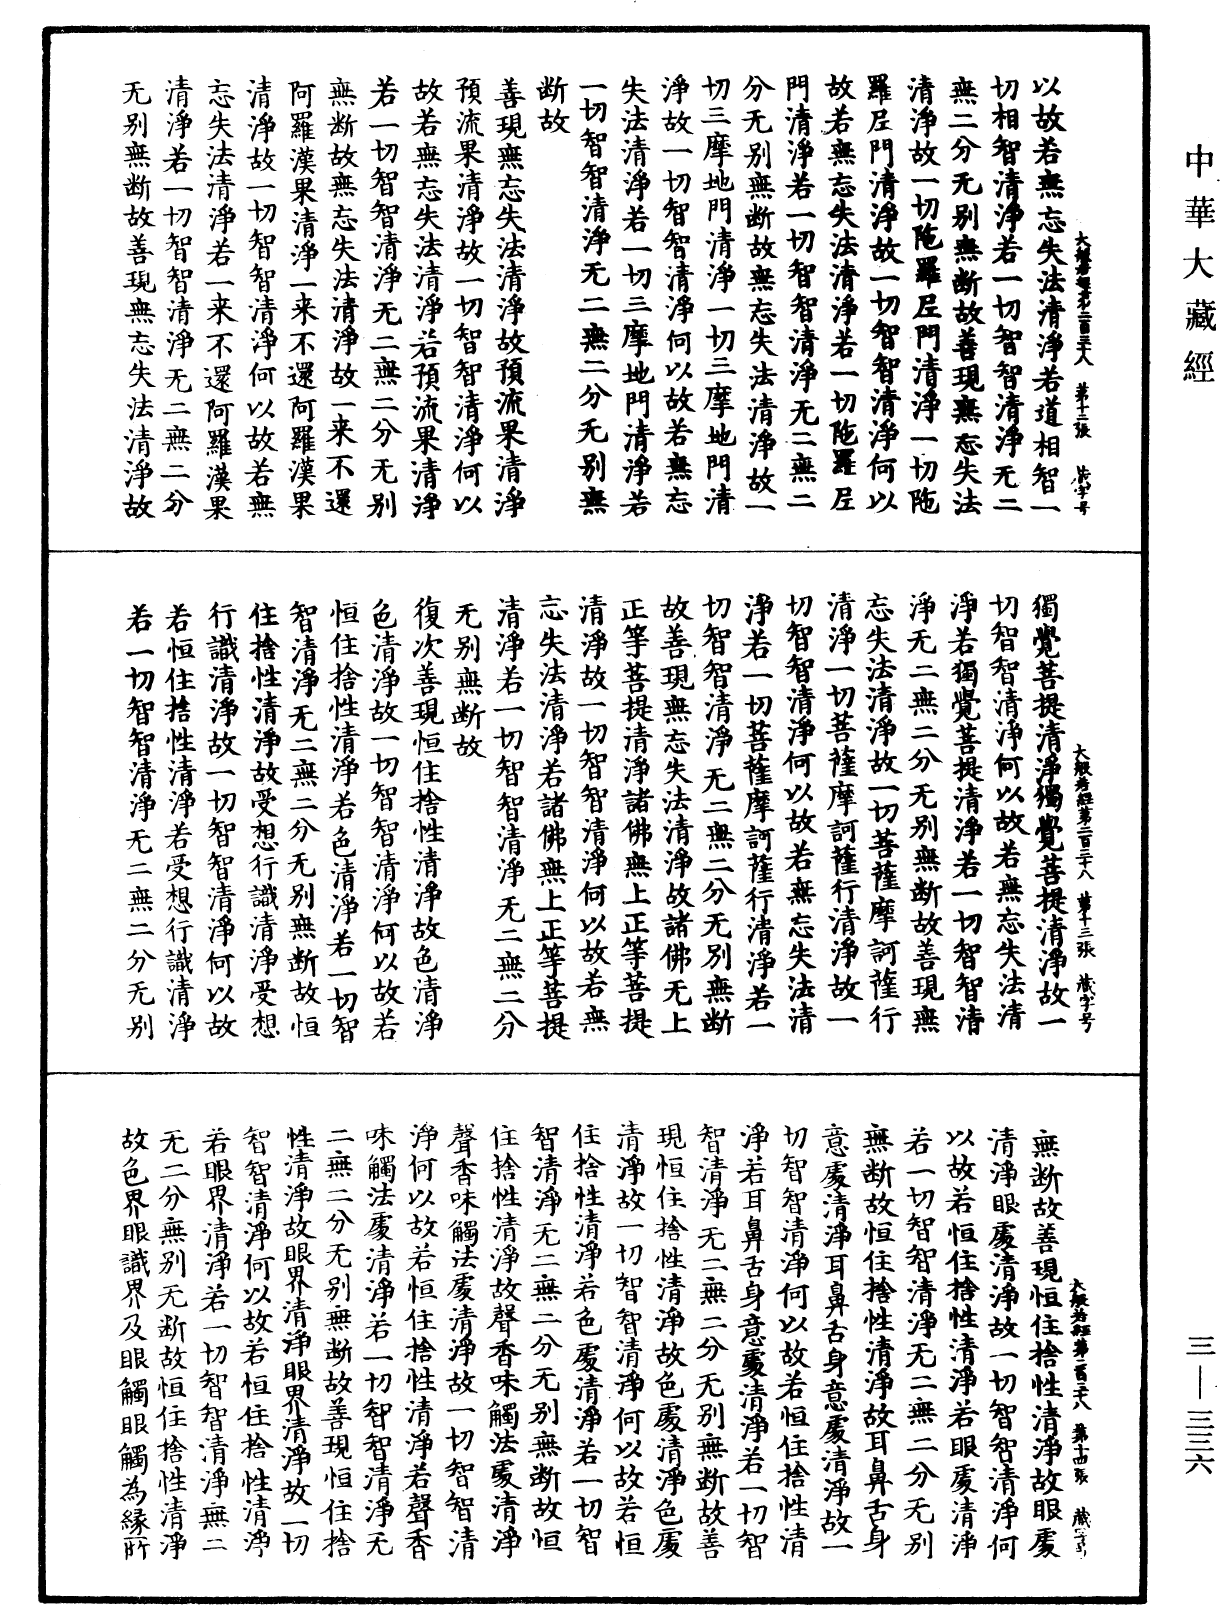 中華大藏經
以故若無忘失法清淨若道相智一
切相智清淨若一切智智清淨无二
無二分无别無断故善現無忘失法
清淨故一切陁羅尼門清淨一切陁
羅尼門清淨故一切智智清淨何以
故若無忘失法清淨若一切陁羅尼
門清淨若一切智智清淨无二無二
分无别無断故無忘失法清淨故一
切三摩地門清淨一切三摩地門清
淨故一切智智清淨何以故若無忘
失法清淨若一切三摩地門清淨若
一切智智清淨无二無二分无别無
断故
善現無忘失法清淨故預流果清淨
預流果清淨故一切智智清淨何以
故若無忘失法清淨若預流果清淨
若一切智智清淨无二無二分无别
無断故無忘失法清淨故一来不還
阿羅漢果清淨一来不還阿羅漢果
清淨故一切智智清淨何以故若無
忘失法清淨若一来不還阿羅漢果
清淨若一切智智清淨无二無二分
无别無断故善現無忘失法清淨故
大般若經第二百三十八 第十二張 號字号
獨覺菩提清淨獨覺菩提清淨故一
切智智清淨何以故若無忘失法清
淨若獨覺菩提清淨若一切智智清
淨无二無二分无别無断故善現無
忘失法清淨故一切菩薩摩訶薩行
清淨一切菩薩摩訶薩行清淨故一
切智智清淨何以故若無忘失法清
淨若一切菩薩摩訶薩行清淨若一
切智智清淨无二無二分无别無断
故善現無忘失法清淨故諸佛无上
正等菩提清淨諸佛無上正等菩提
清淨故一切智智清淨何以故若無
忘失法清淨若諸佛無上正等菩提
清淨若一切智智清淨无二無二分
无别無断故
復次善現恒住捨性清淨故色清淨
色清淨故一切智智清淨何以故若
恒住捨性清淨若色清淨若一切智
智清淨无二無二分无别無断故恒
住捨性清淨故受想行識清淨受想
行識清淨故一切智智清淨何以故
若恒住捨性清淨若受想行識清淨
若一切智智清淨无二無二分无别
大般若經第二百三十八 第十三張 藏字号
無断故善現恒住捨性清淨故眼處
清淨眼處清淨故一切智智清淨何
以故若恒住捨性清淨若眼處清淨
若一切智智清淨无二無二分无别
無断故恒住捨性清淨故耳鼻舌身
意處清淨耳鼻舌身意處清淨故一
切智智清淨何以故若恒住捨性清
淨若耳鼻舌身意處清淨若一切智
智清淨无二無二分无别無断故善
現恒住捨性清淨故色處清淨色處
清淨故一切智智清淨何以故若恒
住捨性清淨若色處清淨若一切智
智清淨无二無二分无别無断故恒
住捨性清淨故聲香味觸法處清淨
聲香味觸法處清淨故一切智智清
淨何以故若恒住捨性清淨若聲香
味觸法處清淨若一切智智清淨无
二無二分无别無断故善現恒住捨
性清淨故眼界清淨眼界清淨故一切
智智清淨何以故若恒住捨性清淨
若眼界清淨若一切智智清淨無二
无二分無别无断故恒住捨性清淨
故色界眼識界及眼觸眼觸為緣所
大般若經第二百三十八 第十四張 藏字号
三—三三六